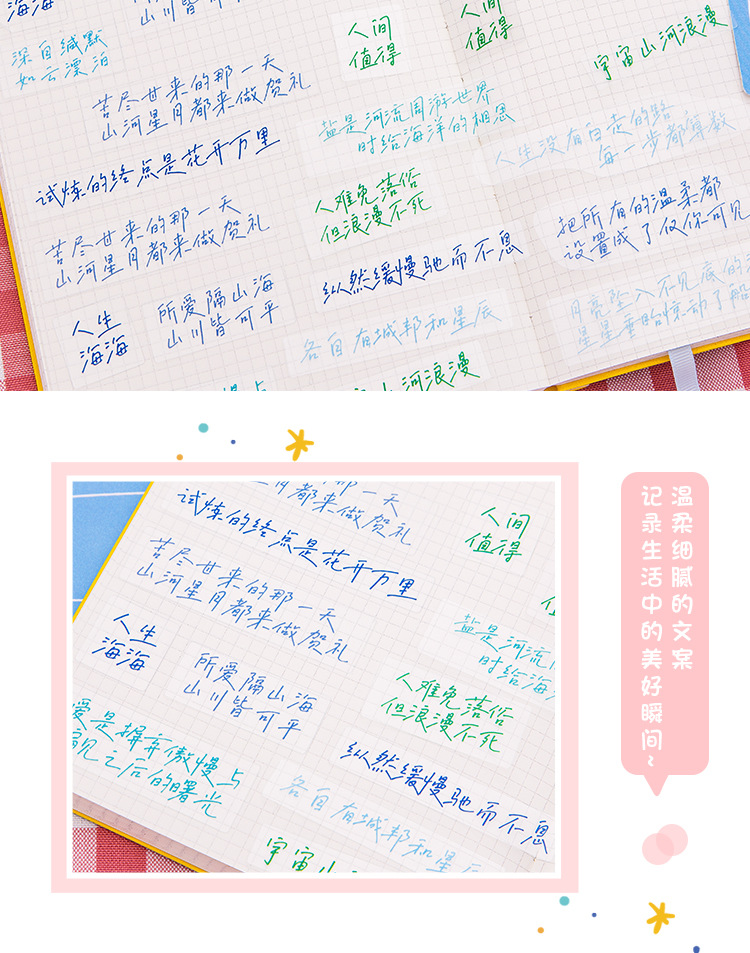 海海
山川皆可平
人间
值得
人间
值得
宇宙山河浪漫
深自缄默
如云漂泊
苦尽甘来的那一天
山河星月都来做贺礼
盐是河流周游世界
时给海洋的相思
人生没有白走的路
每一步都算数
试炼的终点是花开万里
人难免落俗
但浪漫不死
把所有的温柔都
设置成了仅你可见
苦尽甘来的那一天
山河星月都来做贺礼
纵然缓慢驰而不息
人生
海海
所爱隔山海
山川皆可平
各自有城邦和星辰
月亮坠入不见底的
星星垂眸惊动了船
山河浪漫
温柔细腻的文案
记录生活中的美好瞬间~
那一天
都来做贺礼
试炼的终点是花开万里
人间
值得
苦尽甘来的那一天
山河星月都来做贺礼
盐是河流
时给海
人生
海海
所爱隔山海
山川皆可平
人难免落俗
但浪漫不死
爱是摒弃傲慢与
之后的曙光
纵然缓慢驰而不息
各自有城邦和星辰
宇宙山